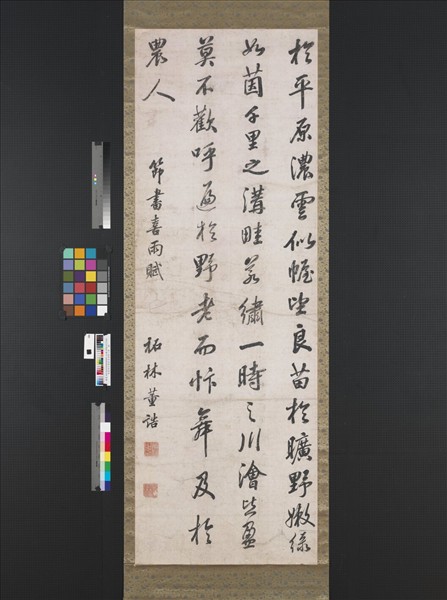 於平原濃雲似幄望良苗於曠野嫩綠
如茵千里之溝畦若繡一時之川澮皆盈
莫不歡呼遍於野老而忭舞及於
農人 節書喜雨賦 柘林董誥